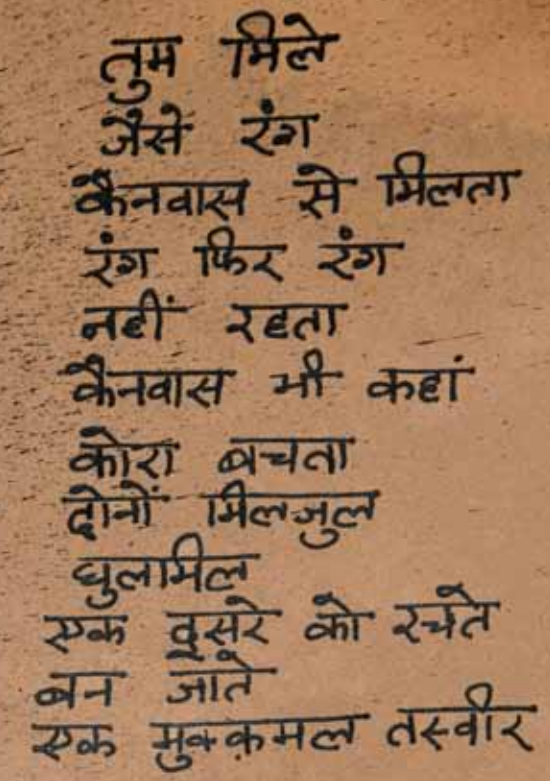 तुम मिले
जैसे रंग
कैनवास से मिलता
रंग फिर रंग
नहीं रहता
कैनवास भी कहां
कोरा बचता
दोनों मिलजुल
घुलामिल
एक दूसरे को रचते
बन जाते
एक मुक्क़मल तस्वीर